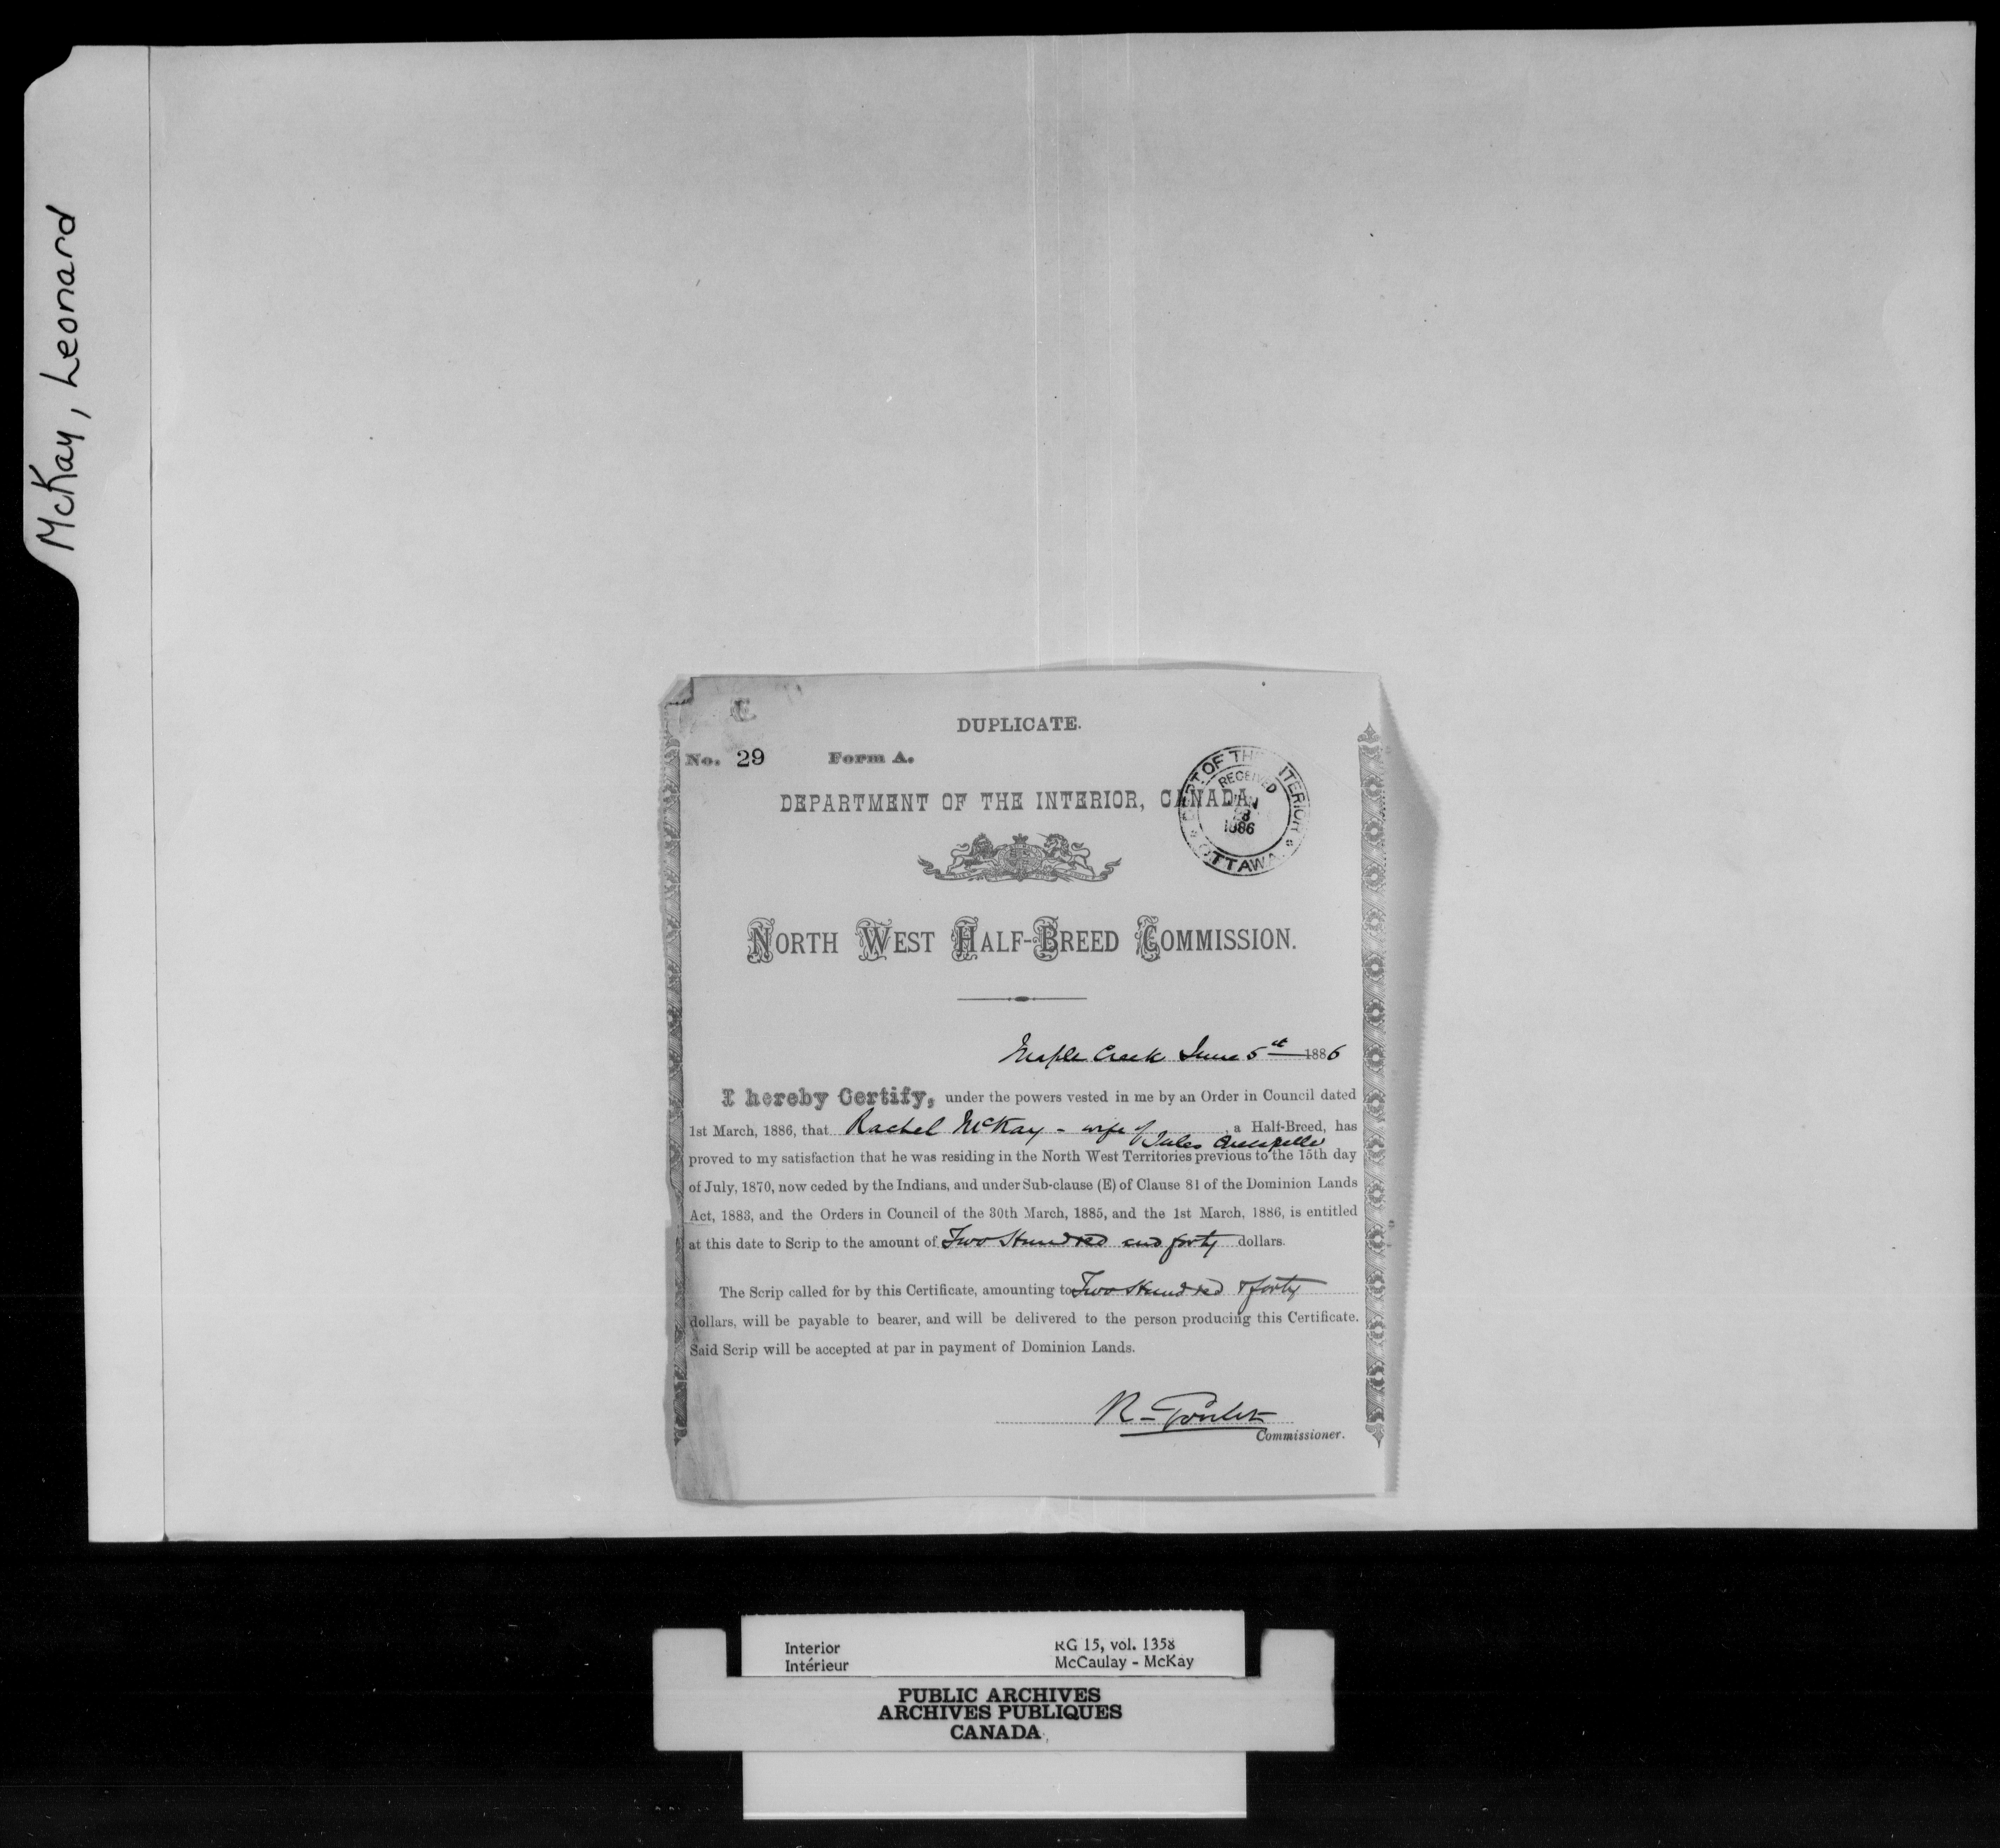 McKay, Leonard
DUPLICATE.
No. 29 Form A.
DEPARTMENT OF THE INTERIOR, CANADA.
DEPT OF THE INTERIOR
RECEIVED
JUN
28
1886
OTTAWA
NORTH WEST HALF-BREED COMMISSION.
Maple Creek June 5th 1886
I hereby Certify, under the powers vested in me by an Order in Council dated
1st March, 1886, that Rachel McKay - wife of Jules Quesnelle, a Half-Breed, has
proved to my satisfaction that he was residing in the North West Territories previous to the 15th day
of July, 1870, now ceded by the Indians, and under Sub-clause (E) of Clause 81 of the Dominion Lands
Act, 1883, and the Orders in Council of the 30th March, 1885, and the 1st March, 1886, is entitled
at this date to Scrip to the amount of Two Hundred and forty dollars.
The Scrip called for by this Certificate, amounting to Two Hundred & forty
dollars, will be payable to bearer, and will be delivered to the person producing this Certificate.
Said Scrip will be accepted at par in payment of Dominion Lands.
R. Goulet
Commissioner.
Interior RG 15, vol. 1358
Intérieur McCaulay - McKay
PUBLIC ARCHIVES
ARCHIVES PUBLIQUES
CANADA